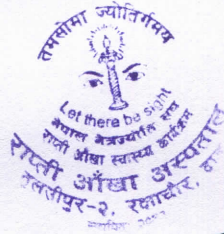 तमसोमा ज्योतिर्गमय
Let there be sight
नेपाल नेत्रज्योति संघ
राप्ती आँखा स्वास्थ्य कार्यक्रम
राप्ती आँखा अस्पताल
तुलसीपुर-२, रक्षाचौर,